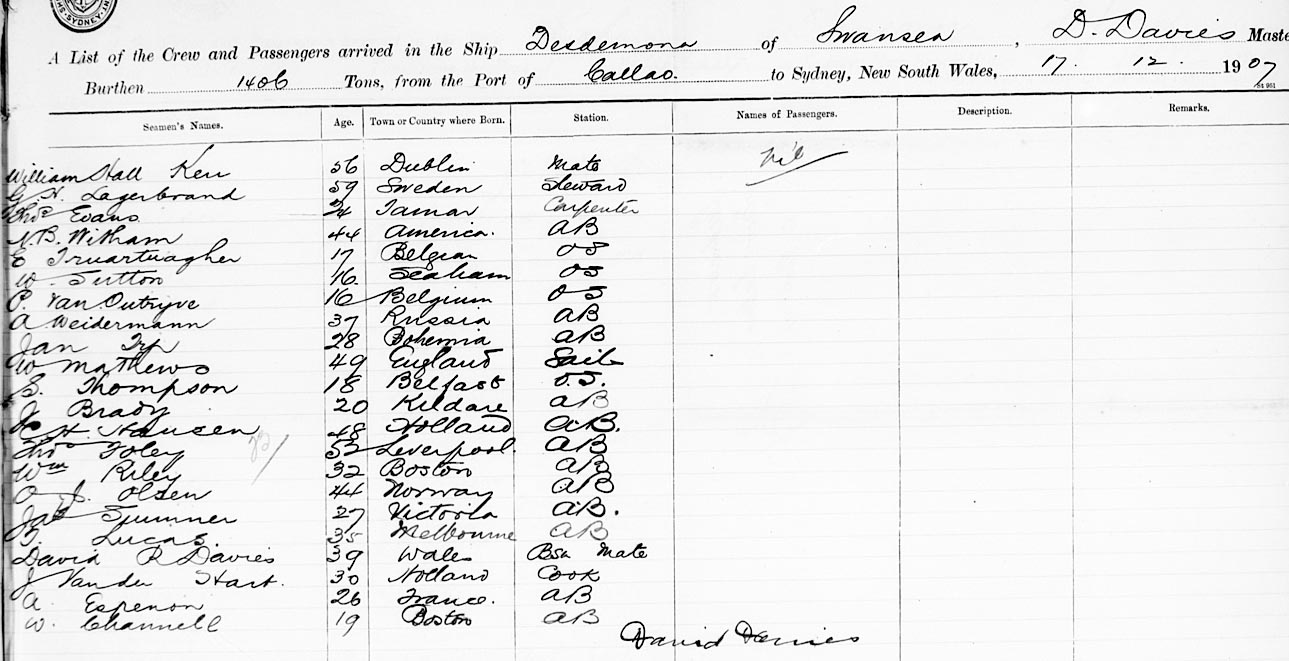 SYDNEY
A List of the Crew and Passengers arrived in the Ship Desdemona of Swansea, D. Davies Maste
Burthen 1406 Tons, from the Port of Callao. to Sydney, New South Wales, 17. 12. 1907
Seamen's Names. Age. Town or Country where Born. Station. Names of Passengers. Description. Remarks.
nil
William Hall Kerr 56 Dublin Mate
G. H. Lagerbrand 59 Sweden Steward
Thos Evans 24 Tamar Carpenter
N.B. Witham 44 America. AB
E 17 Belgian OS
W. Sutton 16. Seaham OS
P. Van Outryve 16 Belgium OS
A Weidermann 37 Russia AB
Jan 28 Bohemia AB
W Mathews 49 England Sail
S. Thompson 18 Belfast O.S.
J Brady 20 Kildare AB
C H. Hansen 48 Holland AB.
Thos Foley 52 Liverpool. AB
Wm Riley 32 Boston AB
O J. Olsen 44 Norway AB
Jas Sumner 27 Victoria AB.
Lucas. 35 Melbourne AB
David R Davies 39 Wales Bsn Mate
J Vander Hart. 30 Holland Cook
A. Espenon 26 France. AB
W. Channell 19 Boston AB
David Davies